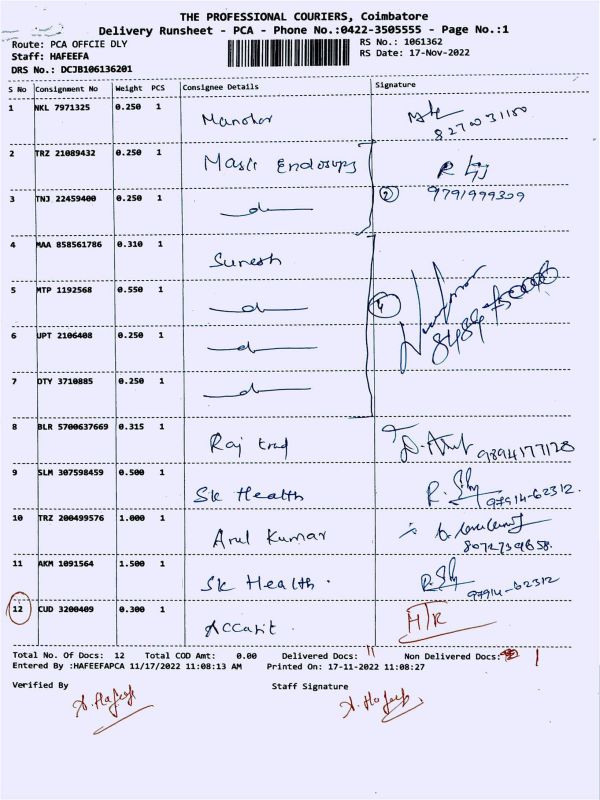 THE PROFESSIONAL COURIERS, Coimbatore
Delivery Runsheet - PCA - Phone No.:0422-3505555 - Page No.:1
Route: PCA OFFCIE DLY
RS No.: 1061362
Staff: HAFEEFA
RS Date: 17-Nov-2022
DRS No.: DCJB106136201
S No Consignment No Weight PCS Consignee Details Signature
1 NKL 7971325 0.250 1 Manohar
8270031100
2 TRZ 21089432 0.250 1 Mask Endosups
3 TNJ 22459400 0.250 1 do 2 9791999309
4 MAA 858561786 0.310 1 Suresh
5 MTP 1192568 0.550 1 do 4
6 UPT 2106408 0.250 1 do
7 OTY 3710885 0.250 1 do
8 BLR 5700637669 0.315 1 Raj trad 9894177128
9 SLM 307598459 0.500 1 Sk Health 97914-62312.
10 TRZ 200499576 1.000 1 Arul Kumar
11 AKM 1091564 1.500 1 Sk Health. 97914-62312
12 CUD 3200409 0.300 1 Accarit
Total No. Of Docs: 12 Total COD Amt: 0.00 Delivered Docs: 11 Non Delivered Docs: 1
Entered By :HAFEEFAPCA 11/17/2022 11:08:13 AM Printed On: 17-11-2022 11:08:27
Verified By Staff Signature